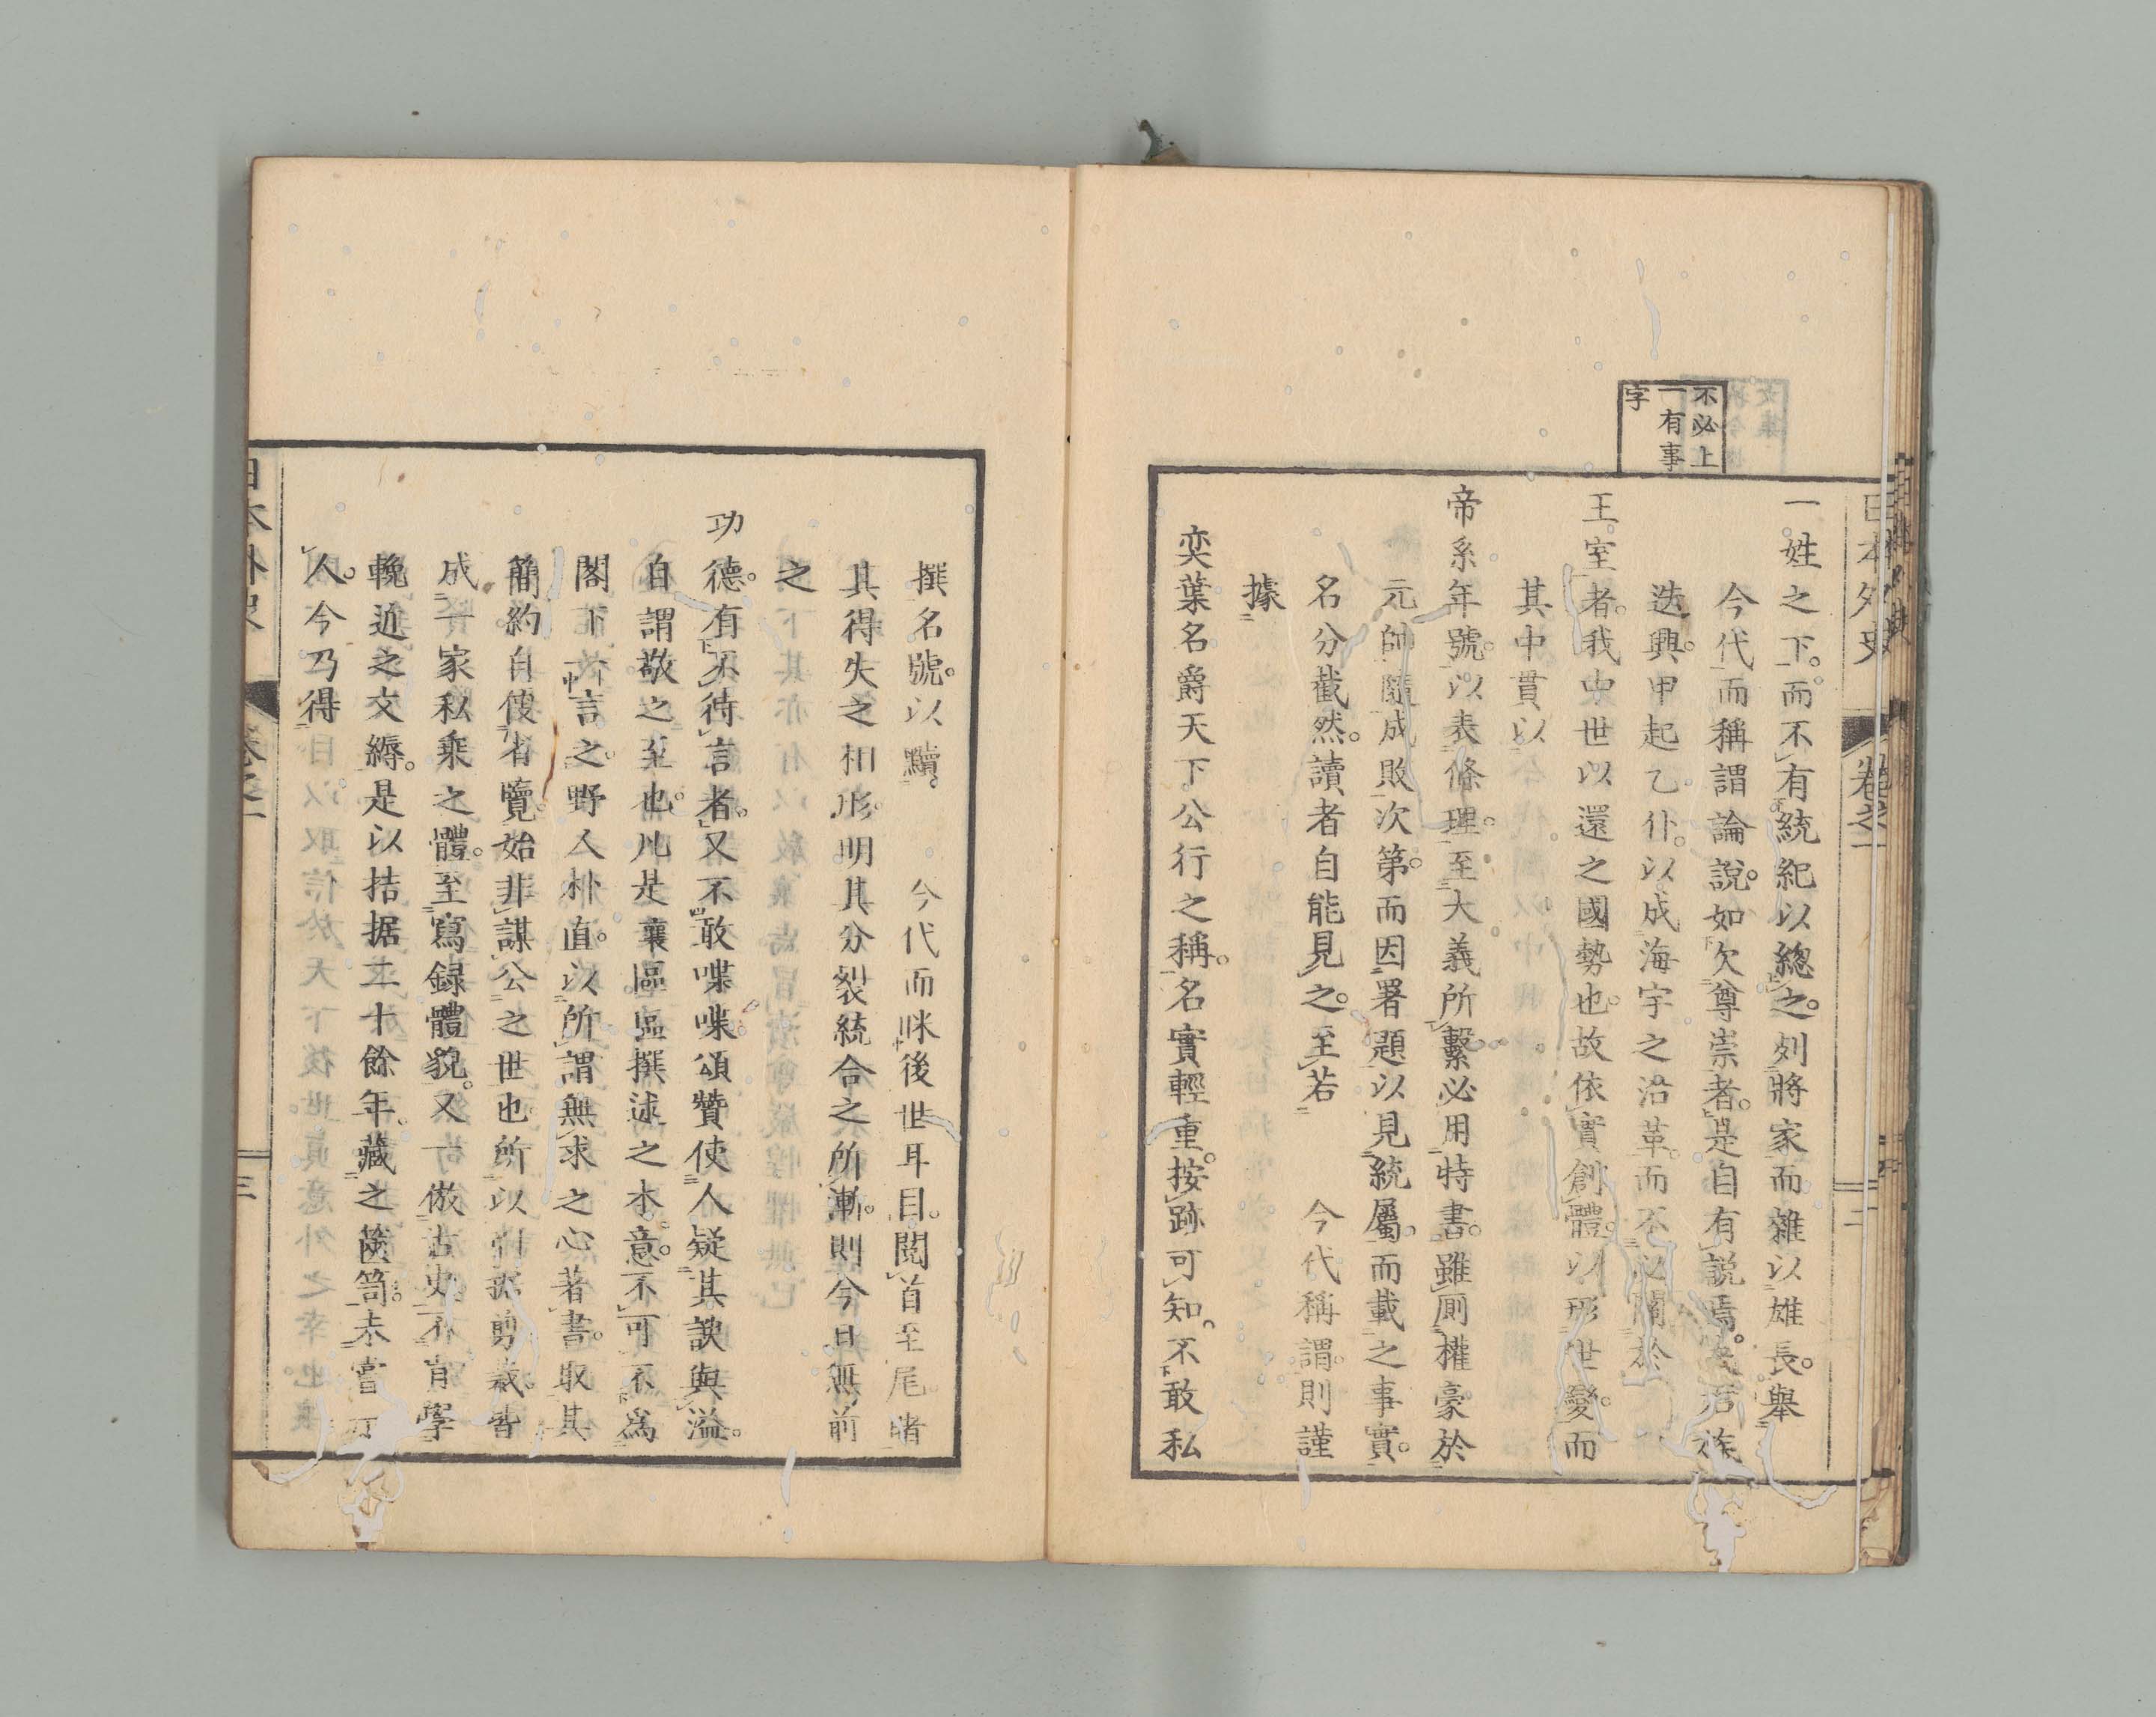 日本外史
卷之一
二
不必上
一有事
字
一姓之下。而不有統紀以總之。列將家而雜以雄長。舉
今代而稱謂論說。如欠尊崇者。是自有說焉。
迭興。甲起乙仆。以成海宇之沿革。而不必關於
王室者。我中世以還之國勢也。故依實創體。以形世變。而
其中貫以
帝系年號。以表條理。至大義所繫必用特書。雖厠權豪於
元帥隨成敗次第。而因署題以見統屬。而載之事實。
名分截然。讀者自能見之。至若 今代稱謂則謹
據
奕葉名爵天下公行之稱。名實輕重。按跡可知。不敢私
撰名號。以黷。 今代而眯後世耳目。閱首至尾睹
其得失之相形明其分裂統合之所漸。則今日無前
之
功德。有不待言者。又不敢喋喋頌贊使人疑其諛與溢。
自謂敬之至也。凡是襄區區撰述之本意。不可不爲
閣下一言之。野人朴直。以所謂無求之心著書。取其
簡約自便省覽。始非謀公之世也。所以剪裁。皆
成一家私乘之體。至寫録體貌。又一倣古史不肯學
輓近之文縟。是以拮据二十餘年。藏之篋笥。未嘗示
人。今乃得
日本外史
卷之一
三